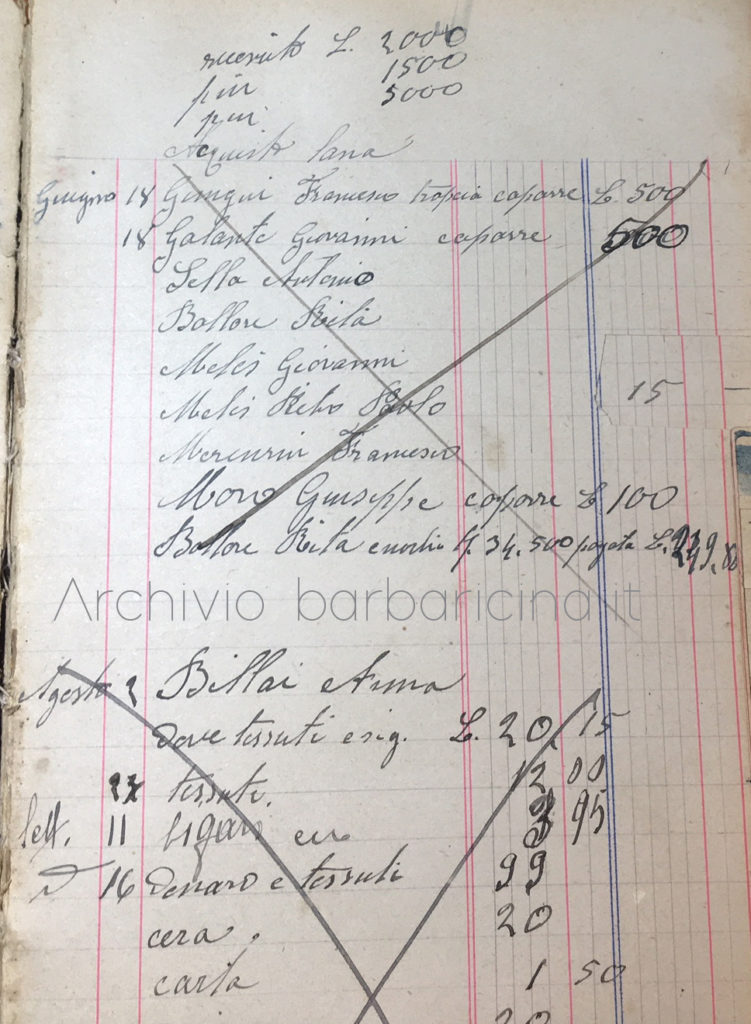 ricevuto L. 2000
piu 1500
piu 5000
Acquisto lana
Giugno 18 Francesco caparre L. 500
18 Galante Giovanni caparre 500
Sella Antonio
Ballore Rita
Melis Giovanni
Melis Paolo
15
Francesco
Moro Giuseppe caparre L 100
Ballore Rita 34.500 pagata L.
Archivio barbaricina.it
Agosto 2 Billai Anna
Dove tessuti e sig. L. 20 15
tessuti. 12 00
Sett. 11 sigari ecc 3 95
D 16 Denaro e tessuti 99
cera. 20
carta 1 50
20